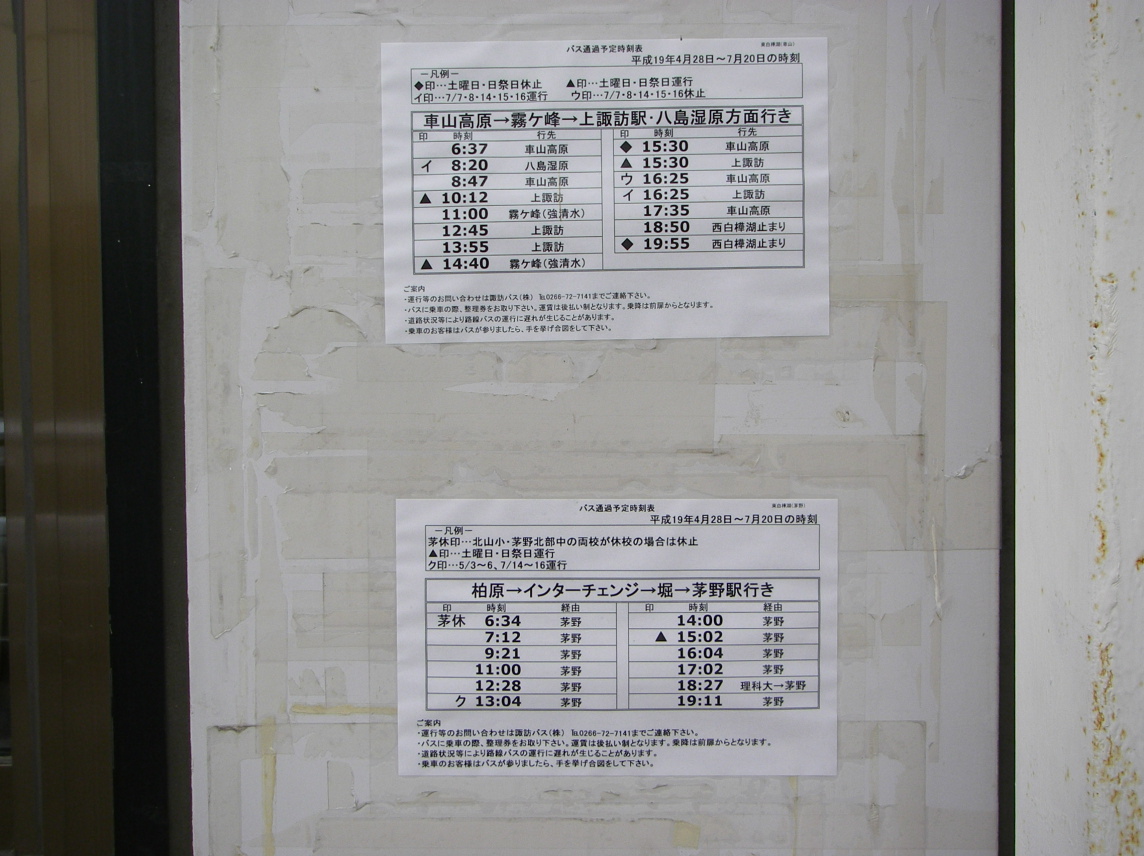 バス通過予定時刻表
東白樺湖(車山)
平成19年4月28日～7月20日の時刻
－凡例－
◆印…土曜日・日祭日休止　▲印…土曜日・日祭日運行
イ印…7/7・8・14・15・16運行　ウ印…7/7・8・14・15・16休止
車山高原→霧ケ峰→上諏訪駅・八島湿原方面行き
印 時刻 行先
6:37 車山高原
イ 8:20 八島湿原
8:47 車山高原
▲ 10:12 上諏訪
11:00 霧ケ峰(強清水)
12:45 上諏訪
13:55 上諏訪
▲ 14:40 霧ケ峰(強清水)
印 時刻 行先
◆ 15:30 車山高原
▲ 15:30 上諏訪
ウ 16:25 車山高原
イ 16:25 上諏訪
17:35 車山高原
18:50 西白樺湖止まり
◆ 19:55 西白樺湖止まり
ご案内
・運行等のお問い合わせは諏訪バス(株)　℡0266-72-7141までご連絡下さい。
・バスに乗車の際、整理券をお取り下さい。運賃は後払い制となります。乗降は前扉からとなります。
・道路状況等により路線バスの運行に遅れが生じることがあります。
・乗車のお客様はバスが参りましたら、手を挙げ合図をして下さい。
バス通過予定時刻表
東白樺湖(茅野)
平成19年4月28日～7月20日の時刻
－凡例－
茅休印…北山小・茅野北部中の両校が休校の場合は休止
▲印…土曜日・日祭日運行
ク印…5/3～6、7/14～16運行
柏原→インターチェンジ→堀→茅野駅行き
印 時刻 経由
茅休 6:34 茅野
7:12 茅野
9:21 茅野
11:00 茅野
12:28 茅野
ク 13:04 茅野
印 時刻 経由
14:00 茅野
▲ 15:02 茅野
16:04 茅野
17:02 茅野
18:27 理科大→茅野
19:11 茅野
ご案内
・運行等のお問い合わせは諏訪バス(株)　℡0266-72-7141までご連絡下さい。
・バスに乗車の際、整理券をお取り下さい。運賃は後払い制となります。乗降は前扉からとなります。
・道路状況等により路線バスの運行に遅れが生じることがあります。
・乗車のお客様はバスが参りましたら、手を挙げ合図をして下さい。